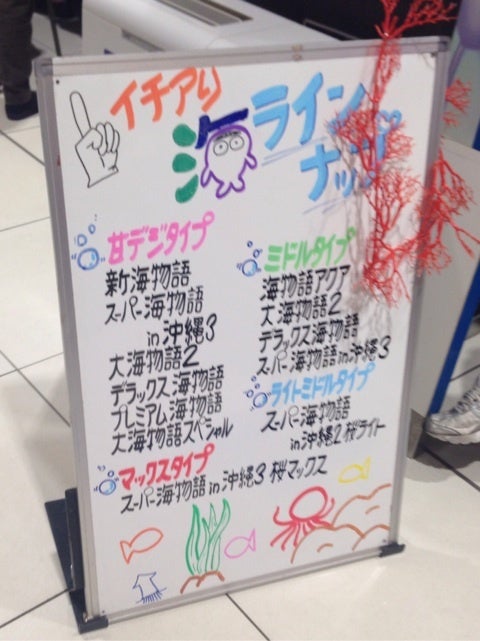 イチアリ
海ラインナップ
甘デジタイプ
新海物語
スーパー海物語
in沖縄3
大海物語2
デラックス海物語
プレミアム海物語
大海物語スペシャル
ミドルタイプ
海物語アクア
大海物語2
デラックス海物語
スーパー海物語in沖縄3
ライトミドルタイプ
スーパー海物語
in沖縄2桜ライト
マックスタイプ
スーパー海物語in沖縄3桜マックス